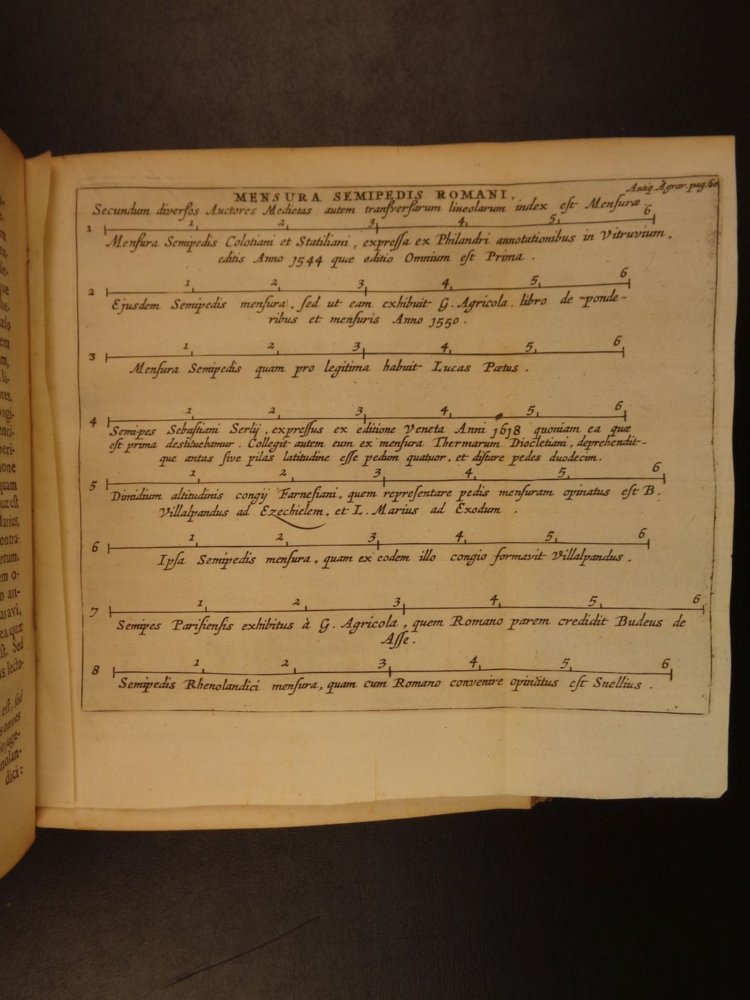 Antiq. Agrar. pag. 60
MENSURA SEMIPEDIS ROMANI,
Secundum diversos Auctores Medietas autem transversarum lineolarum index est Mensuræ
1 1 2 3 4 5 6
Mensura Semipedis Colotiani et Statiliani, expressa ex Philandri annotationibus in Vitruvium,
editis Anno 1544 quæ editio Omnium est Prima.
2 1 2 3 4 5 6
Ejusdem Semipedis mensura, sed ut eam exhibuit G. Agricola libro de ponde-
ribus et mensuris Anno 1550.
3 1 2 3 4 5 6
Mensura Semipedis quam pro legitima habuit Lucas Pætus.
4 1 2 3 4 5 6
Semipes Sebastiani Serlij, expressus ex editione Veneta Anni 1618 quoniam ea quæ
est prima destituebamur. Collegit autem eum ex mensura Thermarum Diocletiani, deprehendit-
que antas sive pilas latitudine esse pedum quatuor, et distare pedes duodecim.
5 1 2 3 4 5 6
Dimidium altitudinis congij Farnesiani, quem repræsentare pedis mensuram opinatus est B.
Villalpandus ad Ezechielem, et L. Marius ad Exodum.
6 1 2 3 4 5 6
Ipsa Semipedis mensura, quam ex eodem illo congio formavit Villalpandus.
7 1 2 3 4 5 6
Semipes Parisiensis exhibitus à G. Agricola, quem Romano parem credidit Budeus de
Asse.
8 1 2 3 4 5 6
Semipedis Rhenolandici mensura, quam cum Romano convenire opinatus est Snellius.